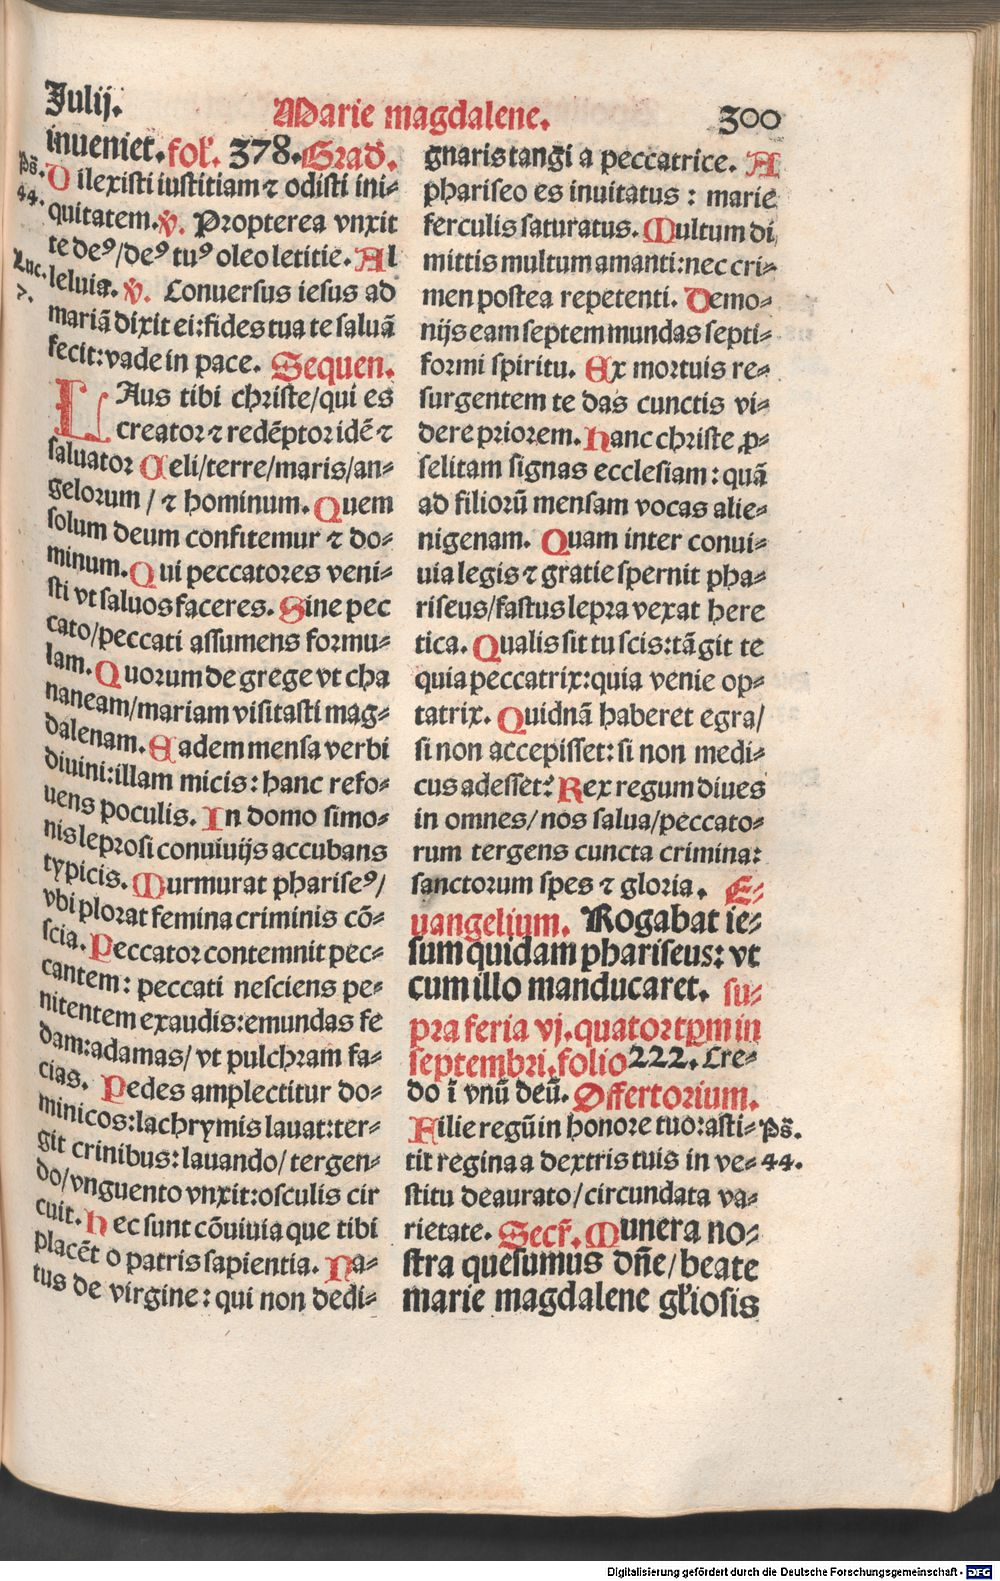 Julij.
Marie magdalene.
300
inueniet. fol'. 378. Grad'.
Ps̄. 44.
Dilexisti iustitiam ⁊ odisti ini⸗
quitatem. V̄. Propterea vnxit
te deꝰ/deꝰ tuꝰ oleo letitie. Al
Luc. 7.
leluia. V̄. Conuersus iesus ad
mariā dixit ei: fides tua te saluā
fecit: vade in pace. Sequen.
LAus tibi christe/qui es
creator ⁊ redēptor idē ⁊
saluator Celi/terre/maris/an⸗
gelorum / ⁊ hominum. Quem
solum deum confitemur ⁊ do⸗
minum. Qui peccatores veni⸗
sti vt saluos faceres. Sine pec
cato/peccati assumens formu⸗
lam. Quorum de grege vt cha
naneam/mariam visitasti mag⸗
dalenam. Eadem mensa verbi
diuini: illam micis: hanc refo⸗
uens poculis. In domo simo⸗
nis leprosi conuiuijs accubans
typicis. Murmurat phariseꝰ/
vbi plorat femina criminis cō⸗
scia. Peccator contemnit pec⸗
cantem: peccati nesciens pe⸗
nitentem exaudis: emundas fe
dam: adamas/ vt pulchram fa⸗
cias. Pedes amplectitur do⸗
minicos: lachrymis lauat: ter⸗
git crinibus: lauando/ tergen⸗
do/vnguento vnxit: osculis cir
cuit. Hec sunt cōuiuia que tibi
placēt o patris sapientia. Na⸗
tus de virgine: qui non dedi⸗
gnaris tangi a peccatrice. A
phariseo es inuitatus : marie
ferculis saturatus. Multum di
mittis multum amanti: nec cri⸗
men postea repetenti. Demo⸗
nijs eam septem mundas septi⸗
formi spiritu. Ex mortuis re⸗
surgentem te das cunctis vi⸗
dere priorem. Hanc christe ꝓ⸗
selitam signas ecclesiam: quā
ad filiorū mensam vocas alie⸗
nigenam. Quam inter conui⸗
uia legis ⁊ gratie spernit pha⸗
riseus/fastus lepra vexat here
tica. Qualis sit tu scis: tāgit te
quia peccatrix: quia venie op⸗
tatrix. Quidnā haberet egra/
si non accepisset: si non medi⸗
cus adesset? Rex regum diues
in omnes/ nos salua/peccato⸗
rum tergens cuncta crimina:
sanctorum spes ⁊ gloria. E⸗
uangelium. Rogabat ie⸗
sum quidam phariseus: vt
cum illo manducaret. su⸗
pra feria vj. quatortꝑm in
septembri. folio 222. Cre⸗
do ī vnū deū. Offertorium.
Filie regū in honore tuo: asti⸗
Ps̄. 44.
tit regina a dextris tuis in ve⸗
stitu deaurato/circundata va⸗
rietate. Secr̄. Munera no⸗
stra quesumus dn̄e/beate
marie magdalene gl'iosis
Digitalisierung gefördert durch die Deutsche Forschungsgemeinschaft - DFG